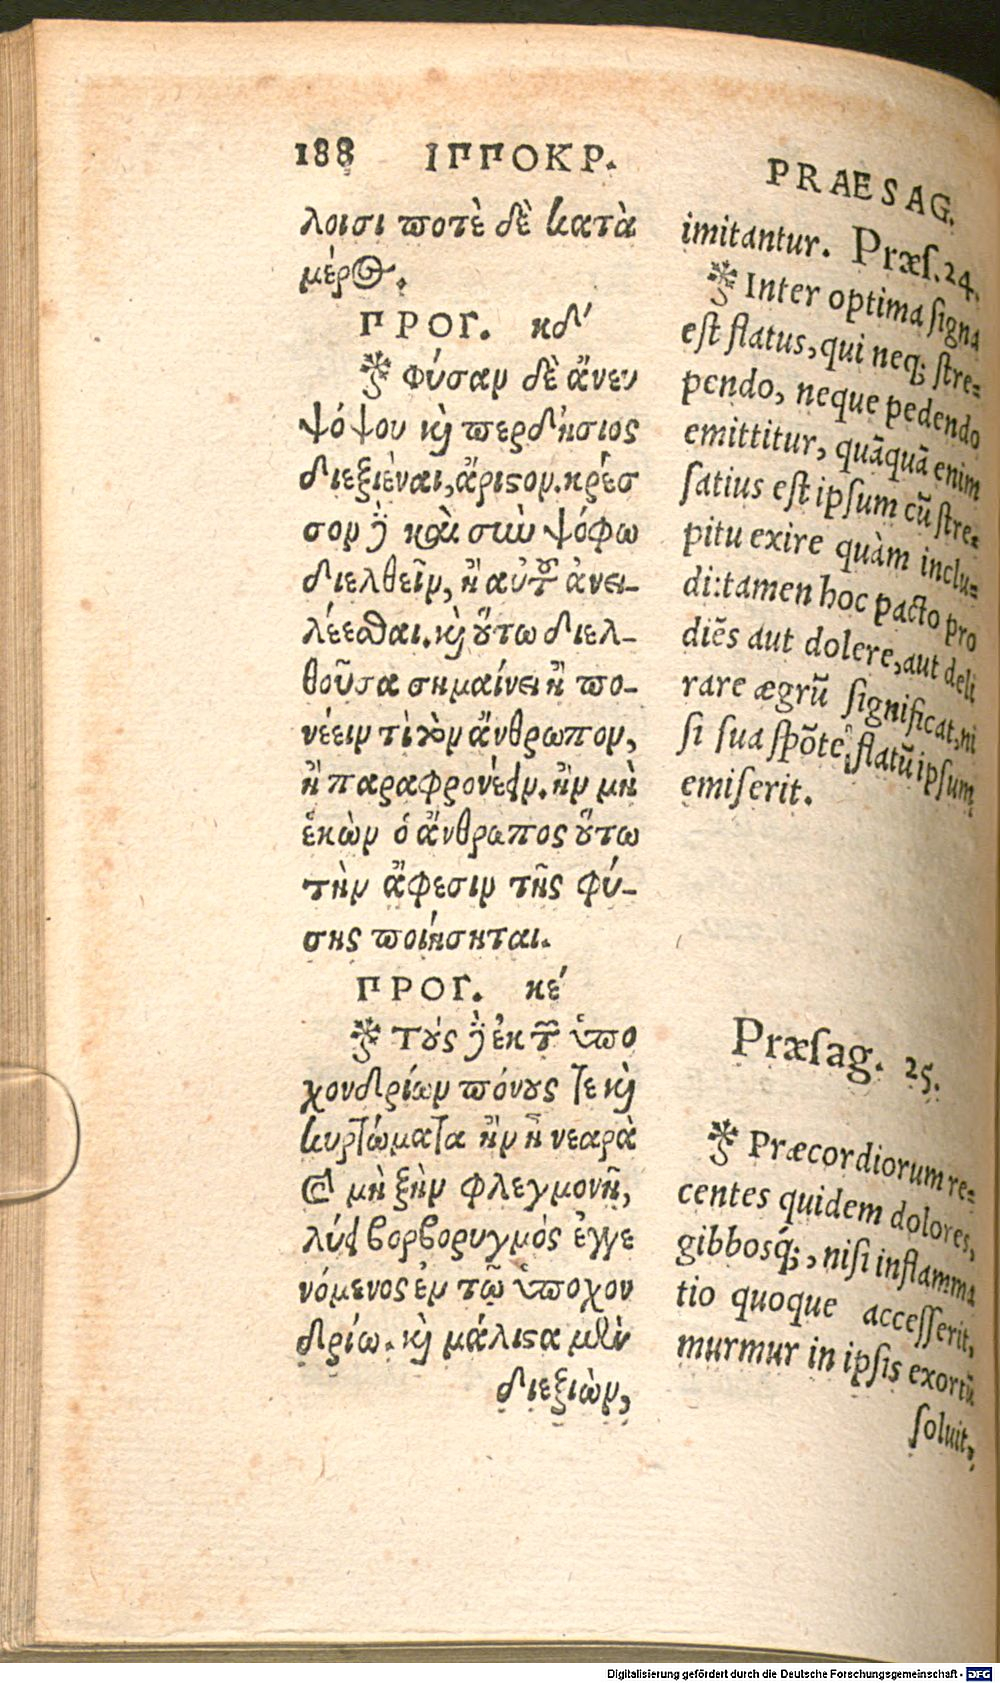 188 ΙΠΠΟΚΡ.
λοισι ποτὲ δὲ κατὰ
μέρος.
ΠΡΟΓ. κδʹ
φύσαν δὲ ἄνευ
ψόφου καὶ περδήσιος
διεξιέναι, ἄριστον. κρέσ
σον δὲ καὶ σὺν ψόφω
διελθεῖν, ἢ αὐτοῦ ἀνει-
λέεσθαι. καὶ οὕτω διελ-
θοῦσα σημαίνει ἢ πο-
νέειν τὶ τὸν ἄνθρωπον,
ἢ παραφρονέειν. ἢν μὴ
ἑκὼν ὁ ἄνθρωπος οὕτω
τὴν ἄφεσιν τῆς φύ-
σης ποιήσηται.
ΠΡΟΓ. κέ
τοὺς δὲ ἐκ τῶν ὑπο
χονδρίων πόνους τε καὶ
κυρτώματα ἢν ᾖ νεαρὰ
καὶ μὴ ξὺν φλεγμονῆ,
λύει βορβορυγμός ἐγγε
νόμενος ἐν τῶ ὑποχον
δρίω. καὶ μάλιστα μὲν
διεξιὼν,
PRAESAG.
imitantur. Præſ. 24.
Inter optima ſigna
eſt flatus, qui neq; ſtre-
pendo, neque pedendo
emittitur, quāquā enim
ſatius eſt ipſum cū ſtre-
pitu exire quàm inclu-
di: tamen hoc pacto pro
diēs aut dolere, aut deli
rare ægrū ſignificat, ni
ſi ſua ſpōte, flatū ipſum
emiſerit.
Præſag. 25.
Præcordiorum re-
centes quidem dolores,
gibbosq́;, niſi inflamma
tio quoque acceſſerit,
murmur in ipſis exortū
ſoluit,
Digitalisierung gefördert durch die Deutsche Forschungsgemeinschaft - DFG